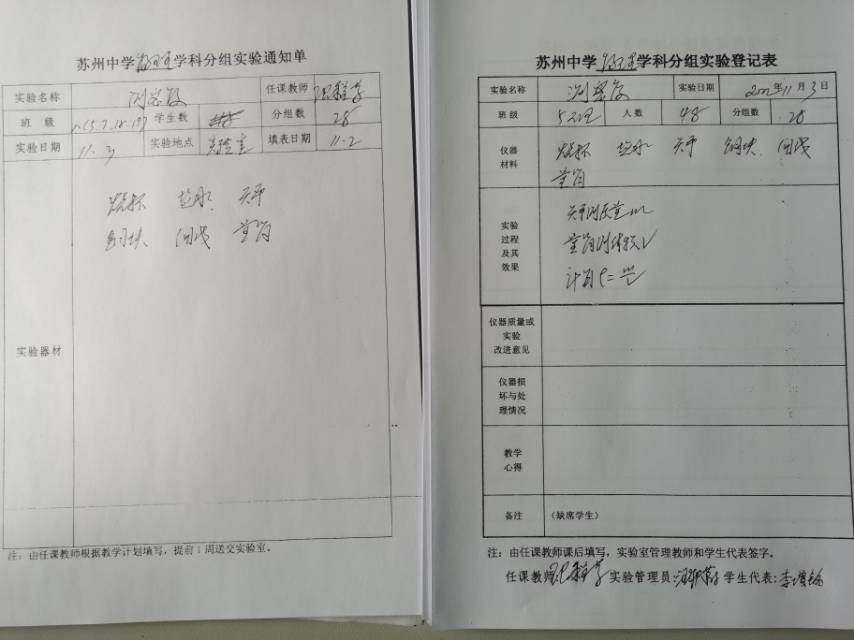 苏州中学物理学科分组实验通知单
实验名称 测密度 任课教师
班 级 学生数 分组数 28
实验日期 11.3 实验地点 实验室 填表日期 11.2
实验器材
烧杯 盐水 天平
铜块 细线 量筒
注：由任课教师根据教学计划填写，提前1周送交实验室。
苏州中学物理学科分组实验登记表
实验名称 测密度 实验日期 年11月3日
班级 人数 48 分组数
仪器
材料
烧杯 盐水 天平 铜块 细线
量筒
实验
过程
及其
效果
天平测质量m
量筒测体积V
计算
仪器质量或
实验
改进意见
仪器损
坏与处
理情况
教学
心得
备注 （缺席学生）
注：由任课教师课后填写，实验室管理教师和学生代表签字。
任课教师 实验管理员： 学生代表：